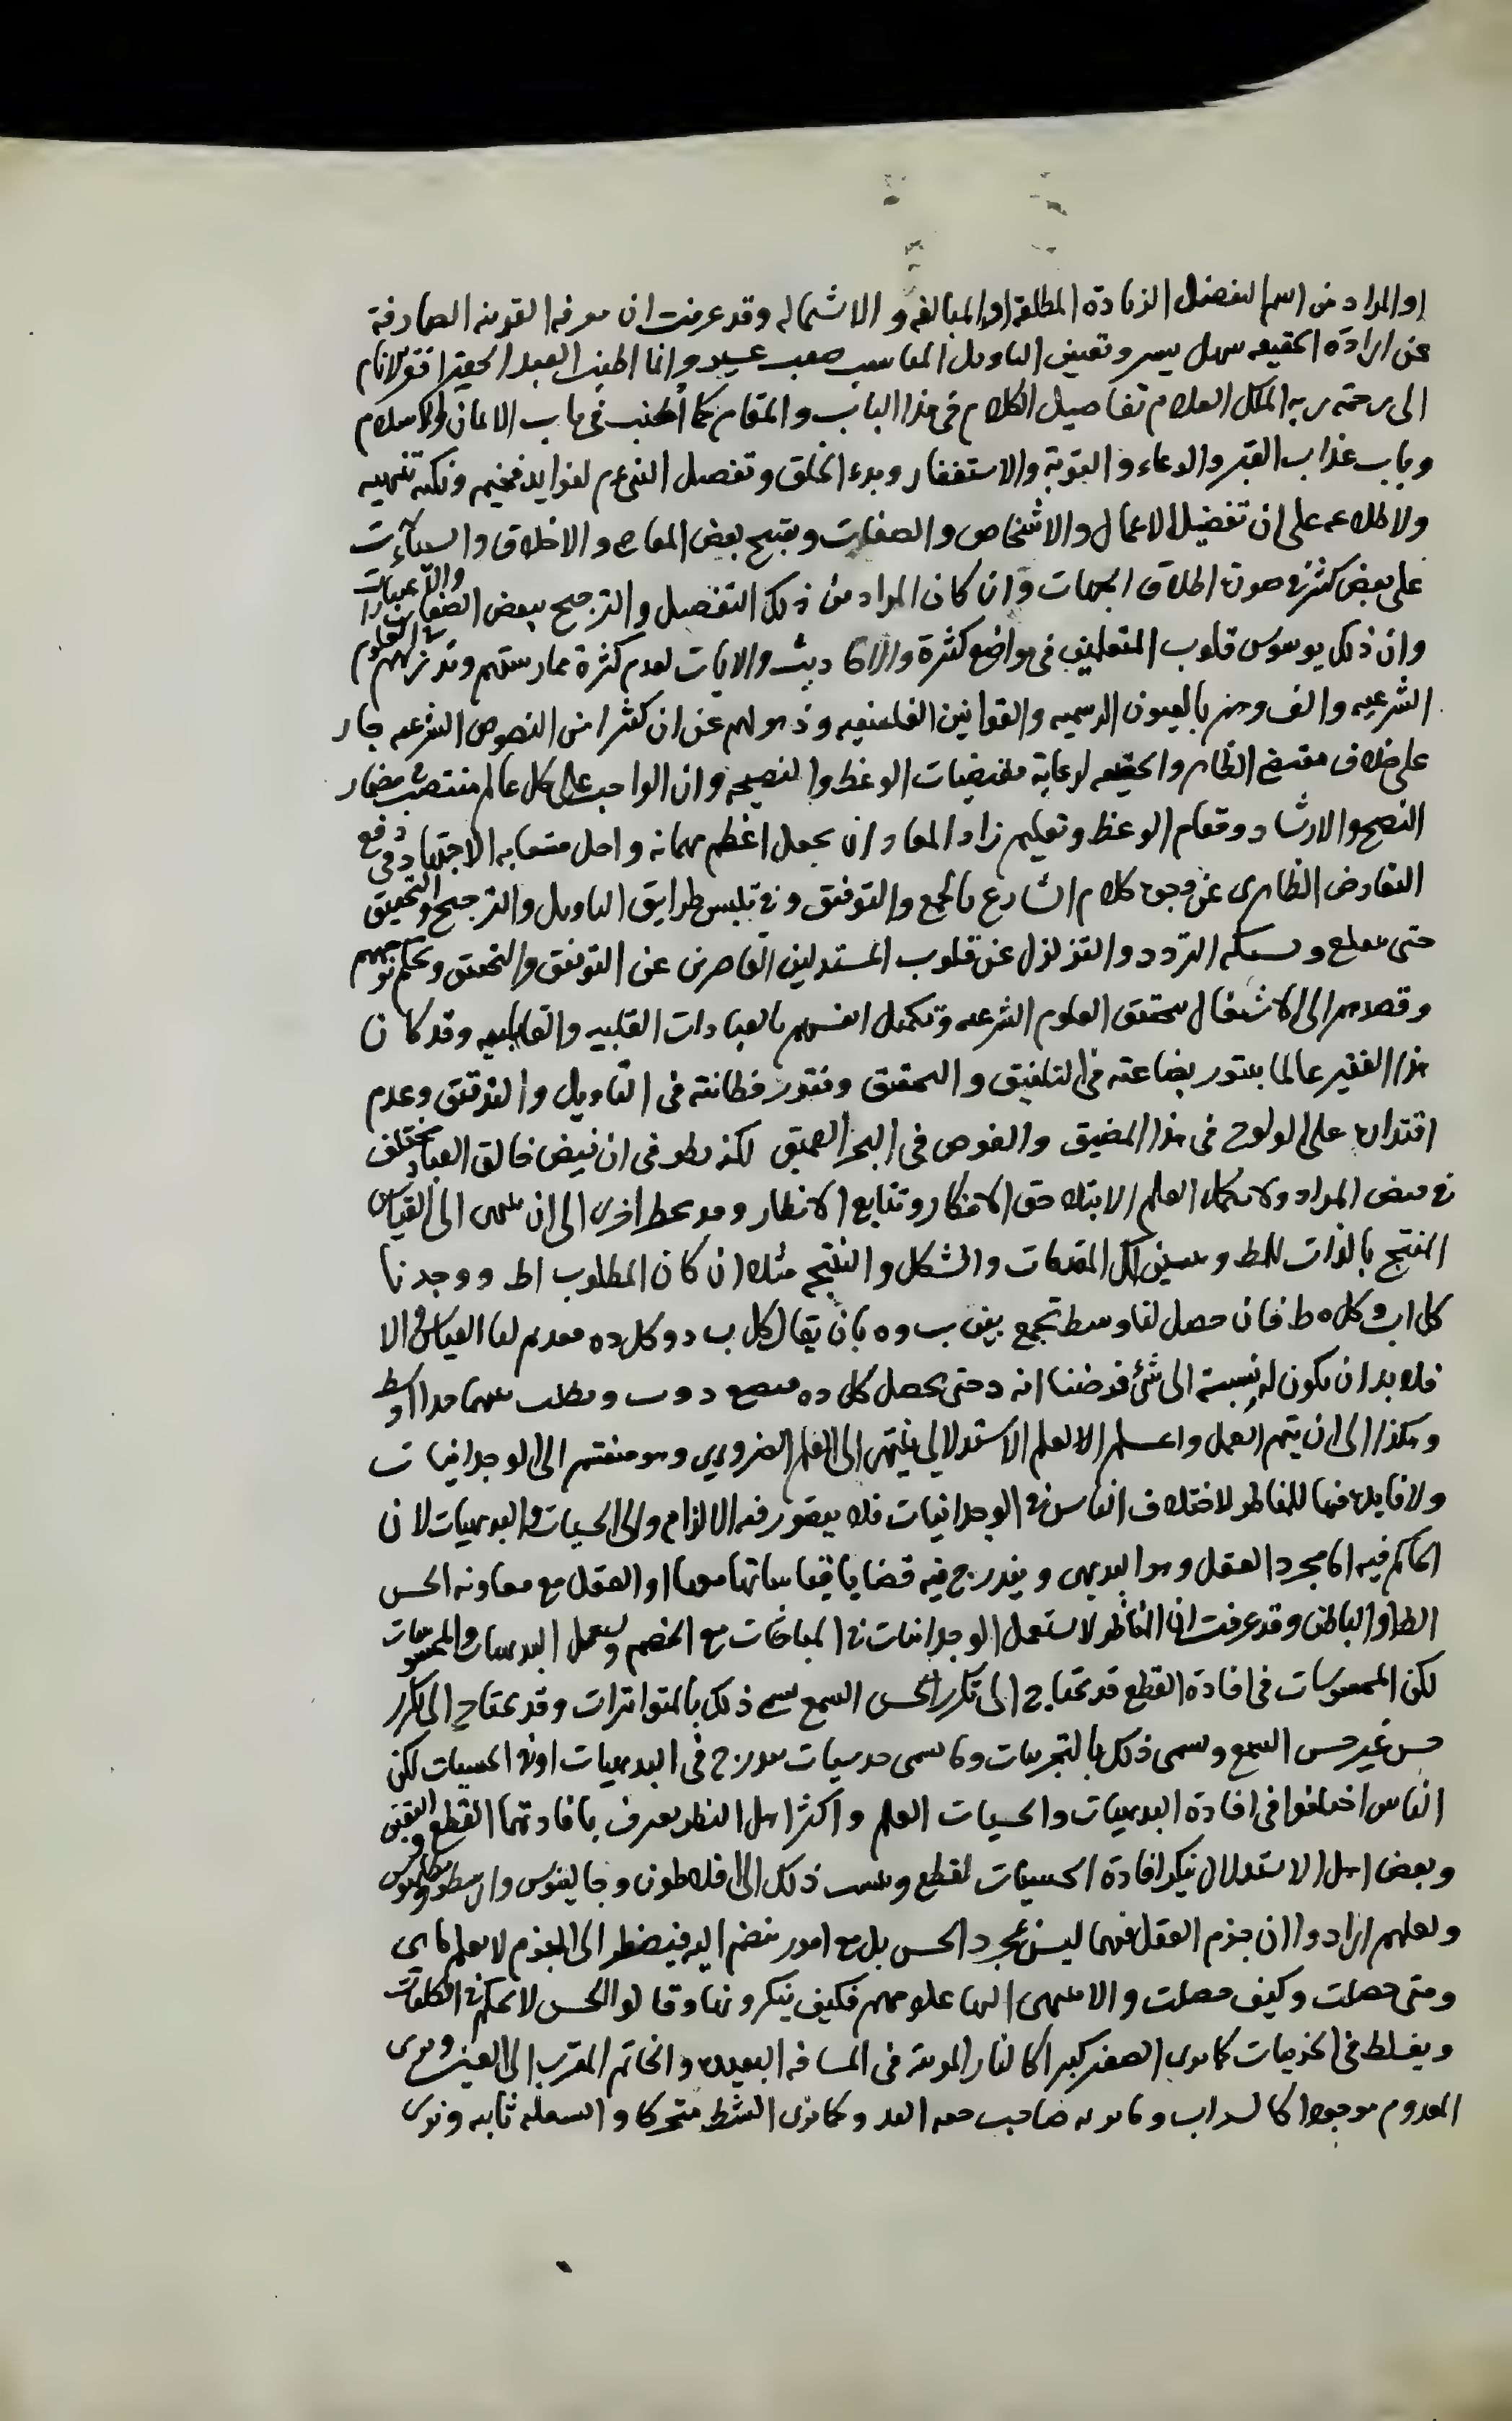 او المراد من اسم التفضيل الزيادة المطلقة او المبالغة و الاشتمال وقد عرفت ان معرفة القرينة الصارفة
عن ارادة الحقيقه سهل يسير وتعيين التاويل المناسب صعب عسير وانما اطنب العبد الحقير افقر الانام
الى رحمة ربه الملك العلام تفاصيل الكلام في هذا الباب و المقام كما أطنب في باب الايمان والاسلام
وباب عذاب القبر والدعاء و التوبة والاستغفار وبدء الخلق وتفصيل لفوايد فخيمه ونكته
ولاطلاعه على ان تفضيل الاعمال والاشخاص و الصفات وتقبيح بعض المعاصي و الاخلاق والسيآت
على بعض كثير في صورة اطلاق الجهات وان كان المراد من ذلك التفصيل و الترجيح ببعض الصفات والاعتبارات
وان ذلك يوسوس قلوب المتعلمين في مواضع كثيرة والاحاديث والايات لعدم كثرة ممارستهم وتدربهم في العلوم
الشرعيه والفوهم بالفنون الرسميه والقوانين الفلسفيه وذهولهم عن ان كثيرا من النصوص الشرعيه جار
على خلاف مقتضى الظاهر والحقيقه لرعاية مقتضيات الوعظ والنصيحه وان الواجب على كل عالم منتصب في مضمار
النصح والارشاد ومقام الوعظ وتعليم زاد المعاد ان يجعل اعظم مهماته واجل متعابه الاجتهاد في دفع
التعارض الظاهرى عن وجوه كلام الشارع بالجمع والتوفيق وفي طرايق التاويل والترجيح والتحقيق
حتى التردد والتزلزل عن قلوب المستدلين القاصرين عن التوفيق والتحقيق
وقصدهم الى الاشتغال بتحقيق العلوم الشرعيه وتكميل انفسهم بالعبادات القلبيه والقالبيه وقد كان
هذا الفقير عالما بفتور بضاعته في التلفيق و التحقيق وفتور فطانته في التاويل و التوفيق وعدم
اقتداره على الولوج في هذا المضيق والغوص في البحر العميق لكنه ان فيض خالق العباد
المراد العلم الافكار وتتابع الانظار اخرى الى ان ينتهى الى القياس
المنتج بالذات للمط المقدمات والشكل و النتيجه مثلا ان كان المطلوب اط ووجدنا
كل اب وكل ه ط فان حصل لنا وسط يجمع بين ب و ه بان يقال كل ب د وكل د ه القياس والا
فلا بد ان يكون له نسبة الى شئ فرضنا انه د حتى يحصل كل د ه د و ب ويطلب حدا اوسط
وهكذا الى ان يتم العمل واعلم الا العلم الاستدلالي ينتهى الى العلم الضروري وهو منقسم الى الوجدانيات
ولا فايدة فيها للناظر لاختلاف الناس في الوجدانيات فلا يتصور فيه الالزام والى الحسيات والبديهيات لان
الحاكم فيه اما مجرد العقل وهو البديهى ويندرج فيه قضايا قياساتها معها او العقل مع معاونة الحس
الظ او الباطن وقد عرفت ان الناظر لا يستعمل الوجدانيات في المباحثات مع الخصم ويستعمل البديهيات والمحسوسات
لكن المحسوسات في افادة القطع قد تحتاج الى تكرر الحس السمع سمى ذلك بالمتواترات وقد يحتاج الى تكرر
حس غير حس السمع ويسمى ذلك بالتجربيات وما يسمى حدسيات مندرج في البديهيات او في الحسيات لكن
الناس اختلفوا في افادة البديهيات والحسيات العلم و اكثر اهل النظر يعرف بافادتهما القطع واليقين
وبعض اهل الاستدلال ينكر افادة الحسيات لقطع وينسب ذلك الى افلاطون وجالينوس وارسطو وبطلميوس
ولعلهم ارادوا ان جزم العقل فيها ليس بمجرد الحس بل مع امور ينضم اليه فيضطر الى الجزم لا يعلم ما هي
ومتى حصلت وكيف حصلت والا ينتهى اليها علومهم فكيف ينكرونها وقالوا الحس لا يحكم في الكليات
ويغلط في الجزئيات كما يرى الصغير كبيرا كالنار في المسافة البعيدة والخاتم المقرب الى العين ويرى
المعدوم موجودا كالسراب وكما يرى الشط متحركا و السفينه ثابته ويرى